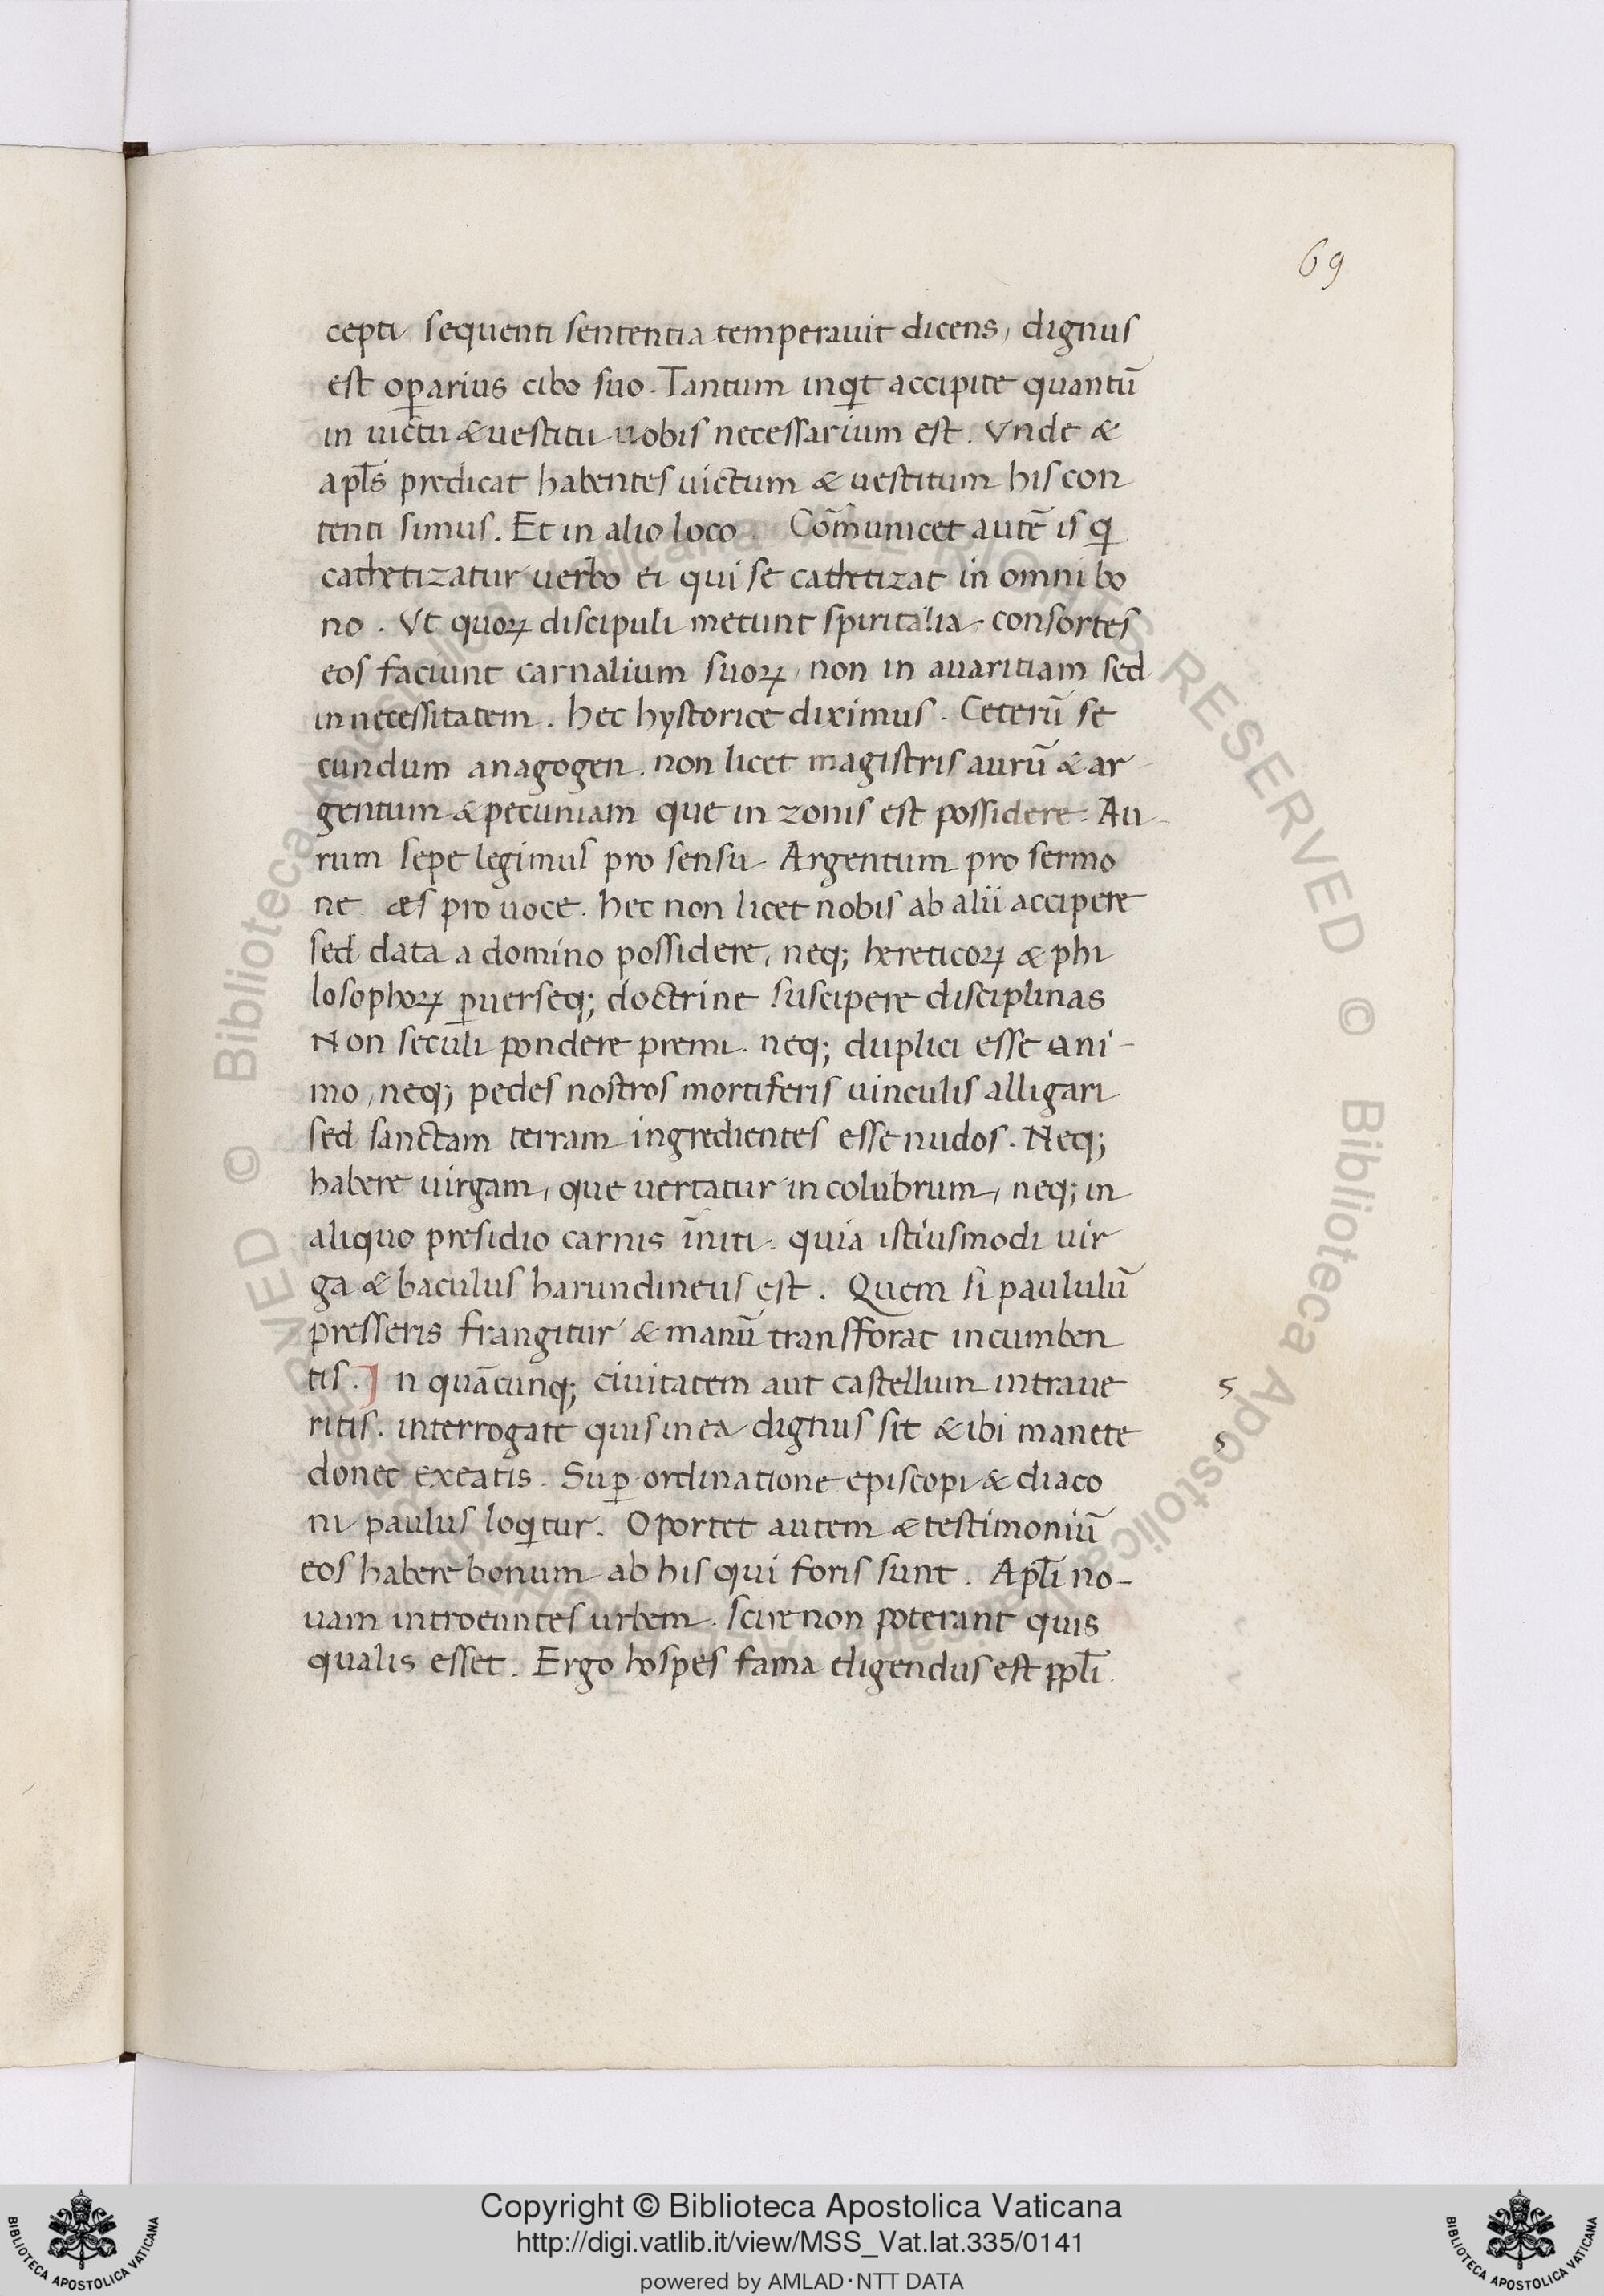 69
cepti sequenti sententia temperauit dicens, dignus
est oꝑarius cibo suo. Tantum inqͥt accipite quantū
in uictu & uestitu uobis necessarium est. Vnde &
apl̄s predicat habentes uictum & uestitum his con
tenti simus. Et in alio loco. Cōmunicet autē is qͥ
cathetizatur uerbo ei qui se cathetizat in omni bo
no. Vt quoꝝ discipuli metunt spiritalia consortes
eos faciunt carnalium suoꝝ, non in auaritiam sed
in necessitatem. hec hystorice diximus. Ceterū se
cundum anagogen. non licet magistris aurū & ar
gentum & pecuniam que in zonis est possidere. Au-
rum sepe legimus pro sensu. Argentum pro sermo
ne æs pro uoce. hec non licet nobis ab alii accipere
sed data a domino possidere, neq; hereticoꝝ & phi
losophoꝝ ꝑuerseq; doctrine suscipere disciplinas
Non seculi pondere premi. neq; duplici esse ani-
mo, neq; pedes nostros mortiferis uinculis alligari
sed sanctam terram ingredientes esse nudos. Neq;
habere uirgam, que uertatur in colubrum, neq; in
aliquo presidio carnis īniti. quia istiusmodi uir
ga & baculus harundineus est. Quem si paululū
presseris frangitur & manū transforat incumben
tis. In quācunq; ciuitatem aut castellum intraue
5
ritis. interrogate quis in ea dignus sit & ibi manete
5
donec exeatis. Suꝑ ordinatione episcopi & diaco
ni paulus loqͥtur. Oportet autem & testimoniū
eos habere bonum ab his qui foris sunt. Apl̄i no-
uam introeuntes urbem. scire non poterant quis
qualis esset. Ergo hospes fama eligendus est ppl̄i.
© Biblioteca Apostolica Vaticana ALL RIGHTS RESERVED © Biblioteca Apostolica Vaticana ALL RIGHTS RESERVED
Copyright © Biblioteca Apostolica Vaticana
http://digi.vatlib.it/view/MSS_Vat.lat.335/0141
powered by AMLAD·NTT DATA
BIBLIOTECA APOSTOLICA VATICANA
BIBLIOTECA APOSTOLICA VATICANA